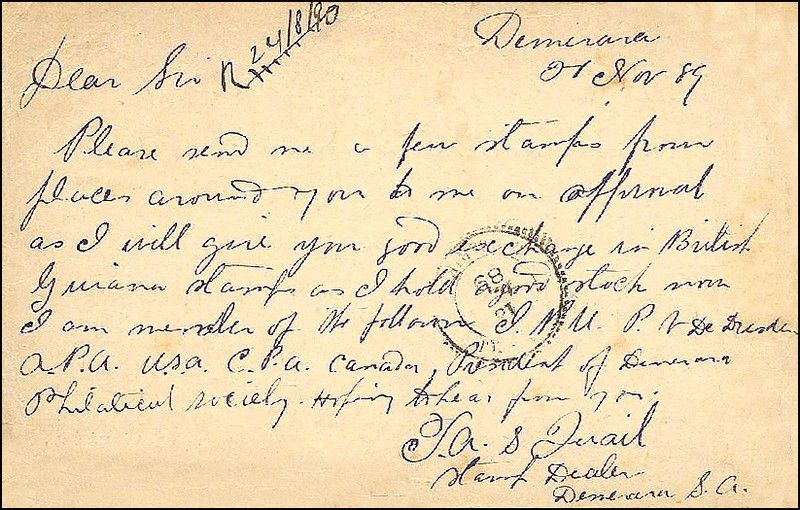 Demerara
21 Nov 89
Dear Sir R 24/8/90
Please send me a few stamps from
places around you to me on approval
as I will give you good exchange in British
Guiana stamps as I hold a good stock now
I am member of the follown P. V De Dresden
A.P.A. U.S.A. C.P.A. Canada, President of Demerara
Philatical society. Hoping to hear from you.
Quail
Stamp Dealer
Demerara S.A.